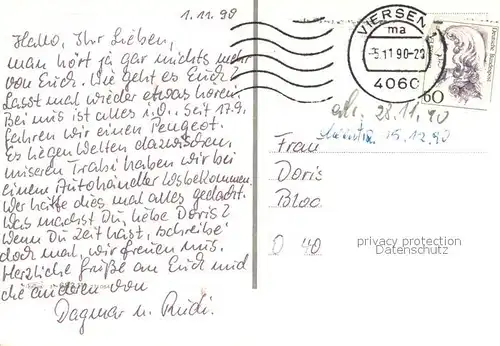 1.11.90
Hallo, Ihr Lieben,
man hört ja gar nichts mehr
von Euch. Wie geht es Euch?
Lasst mal wieder etwas hören.
Bei uns ist alles i.O. Seit 17.9.
fahren wir einen Peugeot.
Es liegen Welten dazwischen,
unseren Trabi haben wir bei
einem Autohändler losbekommen.
Wer hätte dies mal alles gedacht.
Was machst Du, liebe Doris?
Wenn Du Zeit hast, schreibe
doch mal, wir freuen uns.
Herzliche Grüße an Euch und
die anderen von
Dagmar u. Rudi.
VIERSEN
ma
-5.11.90-20
4060
Deutsche Bundespost
60
28.11.90
15.12.90
Frau
Doris
Bloc
O 40
privacy protection
Datenschutz